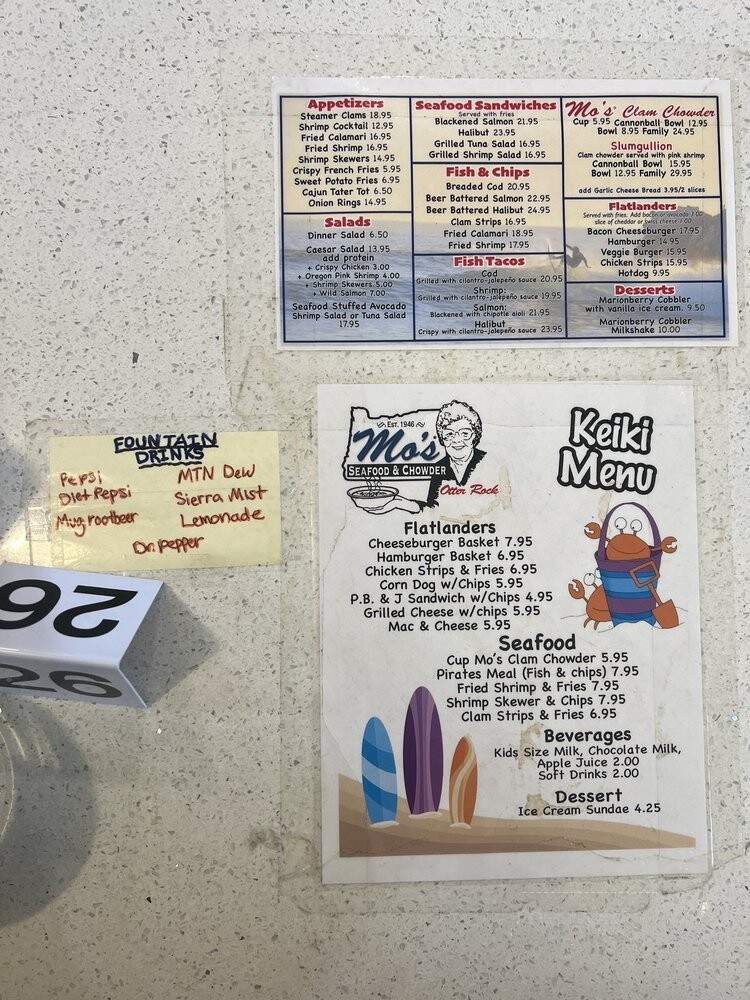 Appetizers
Steamer Clams 18.95
Shrimp Cocktail 12.95
Fried Calamari 16.95
Fried Shrimp 16.95
Shrimp Skewers 14.95
Crispy French Fries 5.95
Sweet Potato Fries 6.95
Cajun Tater Tot 6.50
Onion Rings 14.95
Salads
Dinner Salad 6.50
Caesar Salad 13.95
add protein
+ Crispy Chicken 3.00
+ Oregon Pink Shrimp 4.00
+ Shrimp Skewers 5.00
+ Wild Salmon 7.00
Seafood Stuffed Avocado
Shrimp Salad or Tuna Salad
17.95
Seafood Sandwiches
Served with fries
Blackened Salmon 21.95
Halibut 23.95
Grilled Tuna Salad 16.95
Grilled Shrimp Salad 16.95
Fish & Chips
Breaded Cod 20.95
Beer Battered Salmon 22.95
Beer Battered Halibut 24.95
Clam Strips 16.95
Fried Calamari 18.95
Fried Shrimp 17.95
Fish Tacos
Cod
Grilled with cilantro-jalepeño sauce 20.95
Shrimp:
Grilled with cilantro-jalepeño sauce 19.95
Salmon:
Blackened with chipotle aioli 21.95
Halibut
Crispy with cilantro-jalepeño sauce 23.95
Mo's Clam Chowder
Cup 5.95 Cannonball Bowl 12.95
Bowl 8.95 Family 24.95
Slumgullion
Clam chowder served with pink shrimp
Cannonball Bowl 15.95
Bowl 12.95 Family 29.95
add Garlic Cheese Bread 3.95/2 slices
Flatlanders
Served with fries. Add bacon or avocado 1.00
slice of cheddar or swiss cheese 1.00
Bacon Cheeseburger 17.95
Hamburger 14.95
Veggie Burger 15.95
Chicken Strips 15.95
Hotdog 9.95
Desserts
Marionberry Cobbler
with vanilla ice cream. 9.50
Marionberry Cobbler
Milkshake 10.00
FOUNTAIN
DRINKS
Pepsi
Diet Pepsi
Mug rootbeer
MTN Dew
Sierra Mist
Lemonade
Dr. Pepper
26
26
Est. 1946
Mo's
SEAFOOD & CHOWDER
Otter Rock
Keiki
Menu
Flatlanders
Cheeseburger Basket 7.95
Hamburger Basket 6.95
Chicken Strips & Fries 6.95
Corn Dog w/Chips 5.95
P.B. & J Sandwich w/Chips 4.95
Grilled Cheese w/chips 5.95
Mac & Cheese 5.95
Seafood
Cup Mo's Clam Chowder 5.95
Pirates Meal (Fish & chips) 7.95
Fried Shrimp & Fries 7.95
Shrimp Skewer & Chips 7.95
Clam Strips & Fries 6.95
Beverages
Kids Size Milk, Chocolate Milk,
Apple Juice 2.00
Soft Drinks 2.00
Dessert
Ice Cream Sundae 4.25